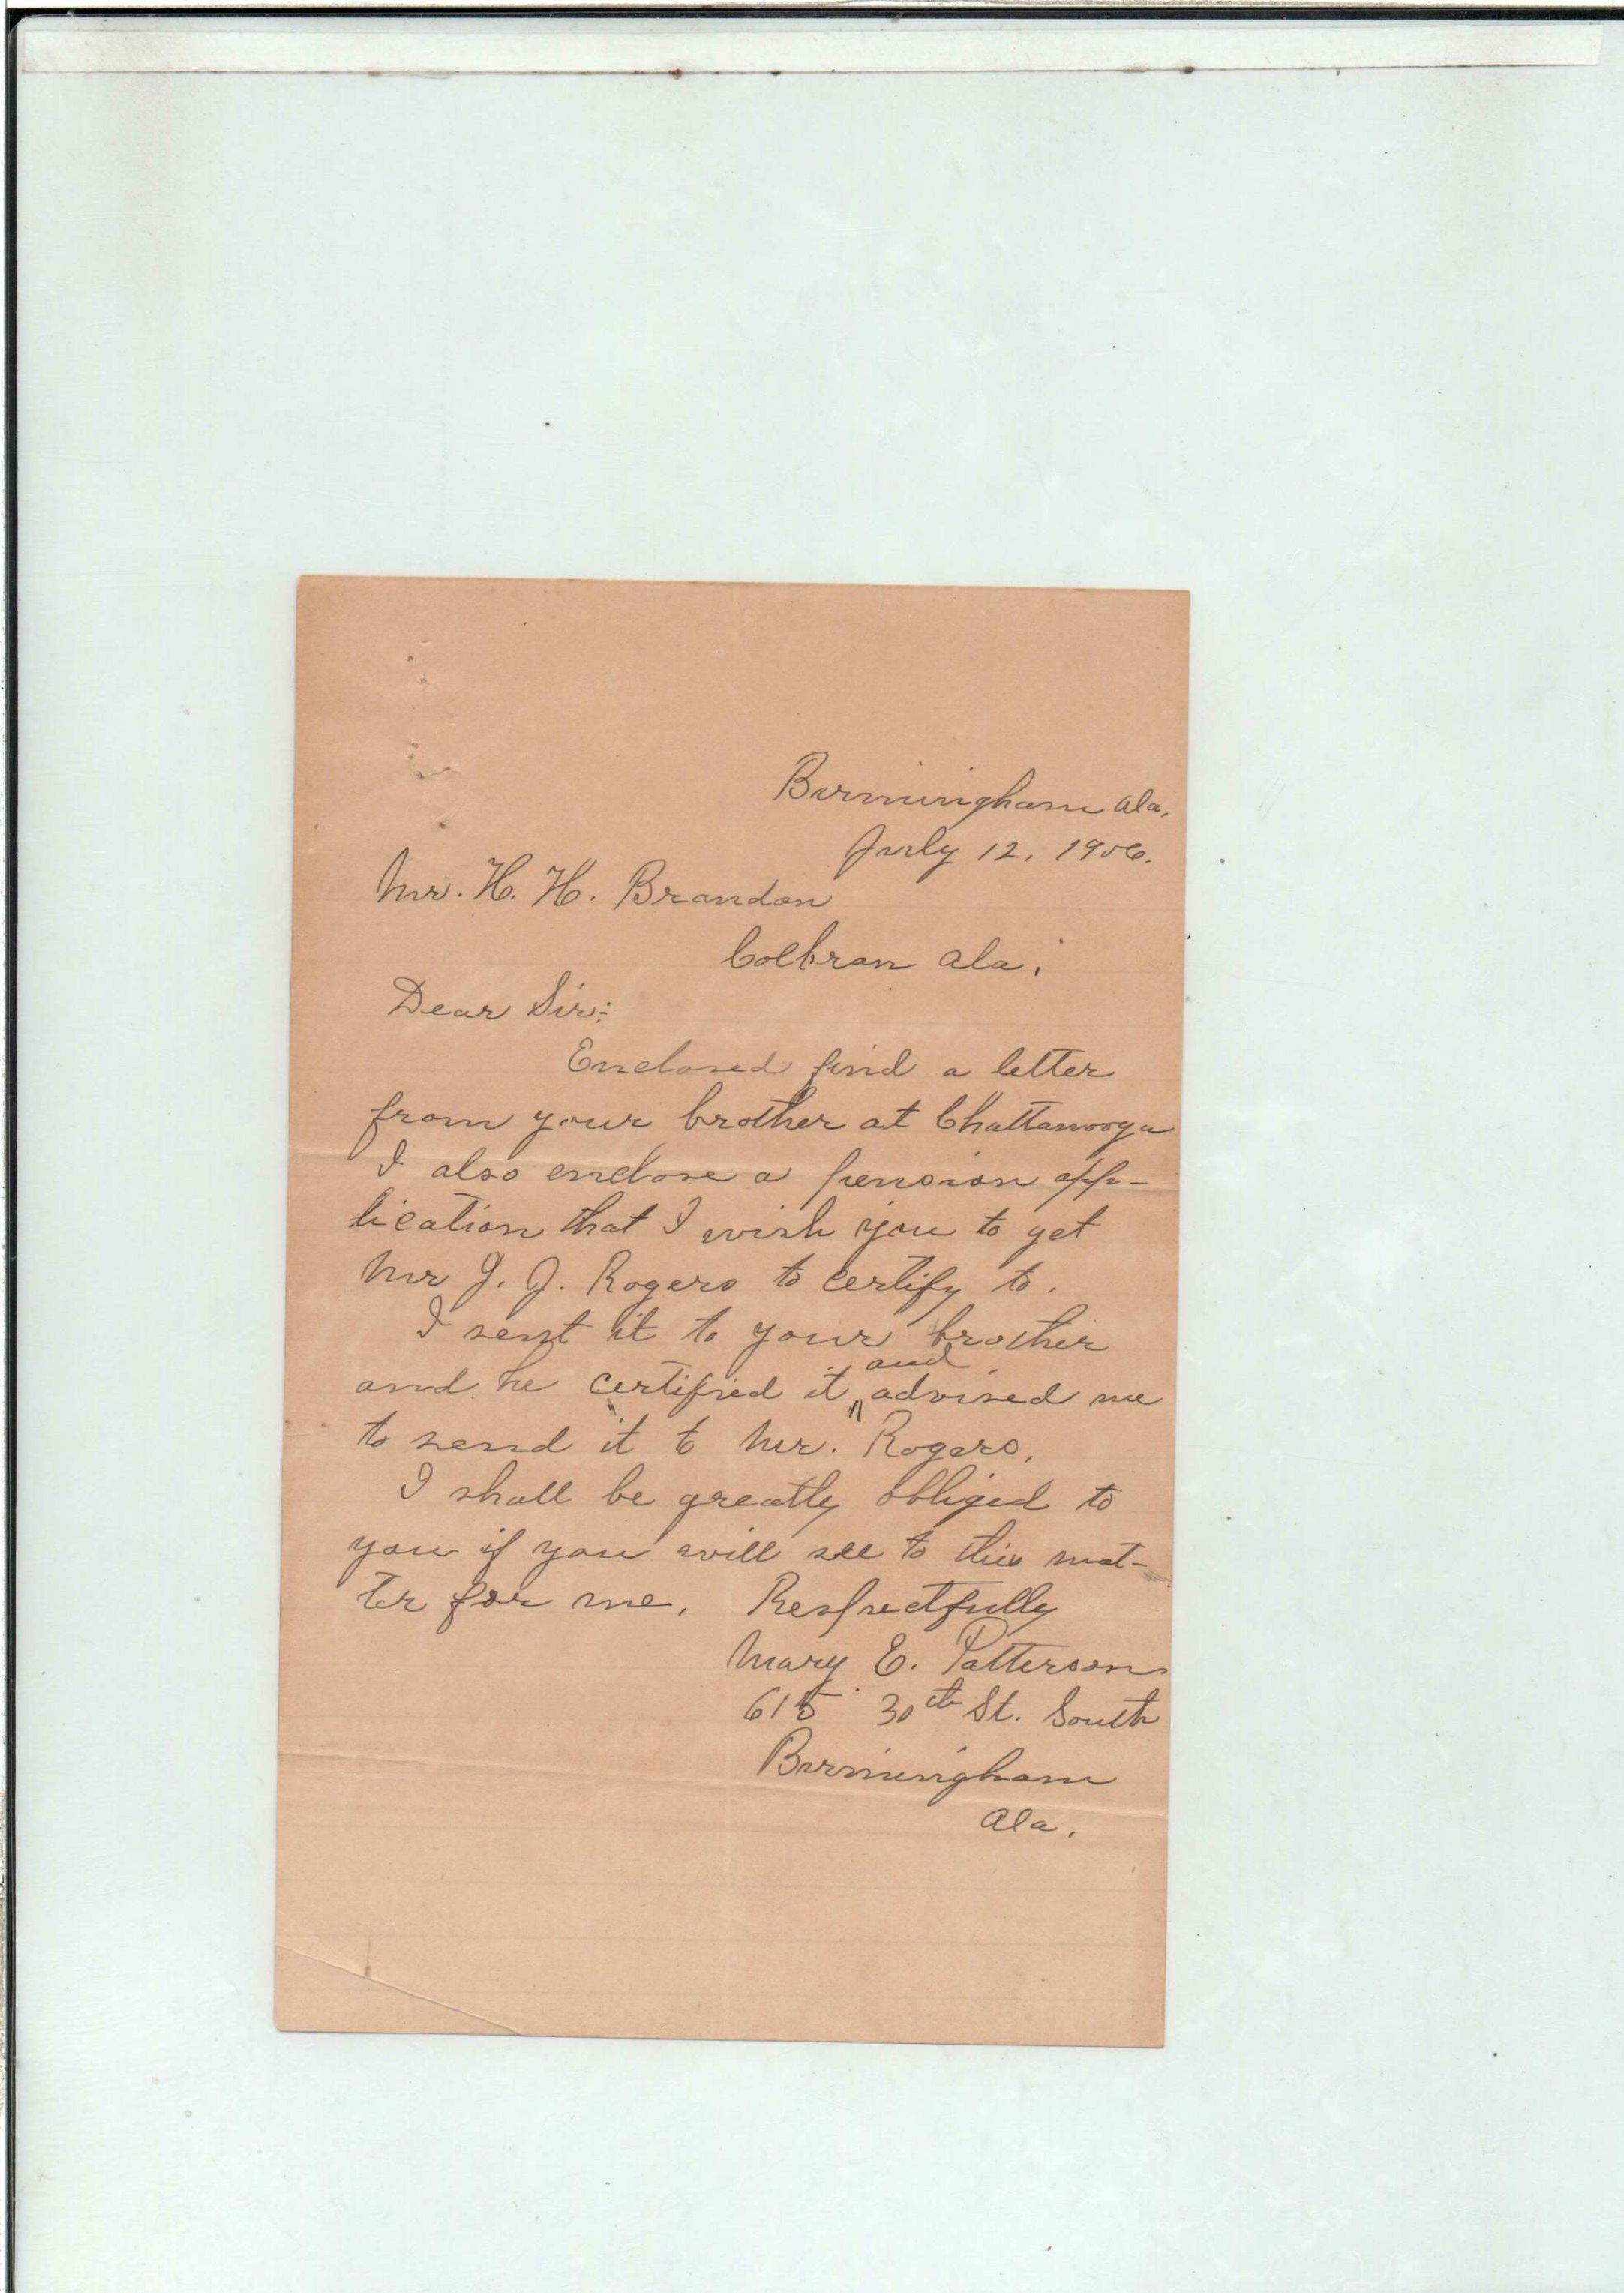 Birmingham Ala.
July 12, 1906.
Mr. H. H. Brandon
Colbran Ala.
Dear Sir:
Enclosed find a letter
from your brother at Chattanooga
I also enclose a pension app-
lication that I wish you to get
Mr J. J. Rogers to certify to.
I sent it to your brother
and he certified it and advised me
to send it to Mr. Rogers.
I shall be greatly obliged to
you if you will see to this mat-
ter for me. Respectfully
Mary E. Patterson
615 30th St. South
Birmingham
Ala.